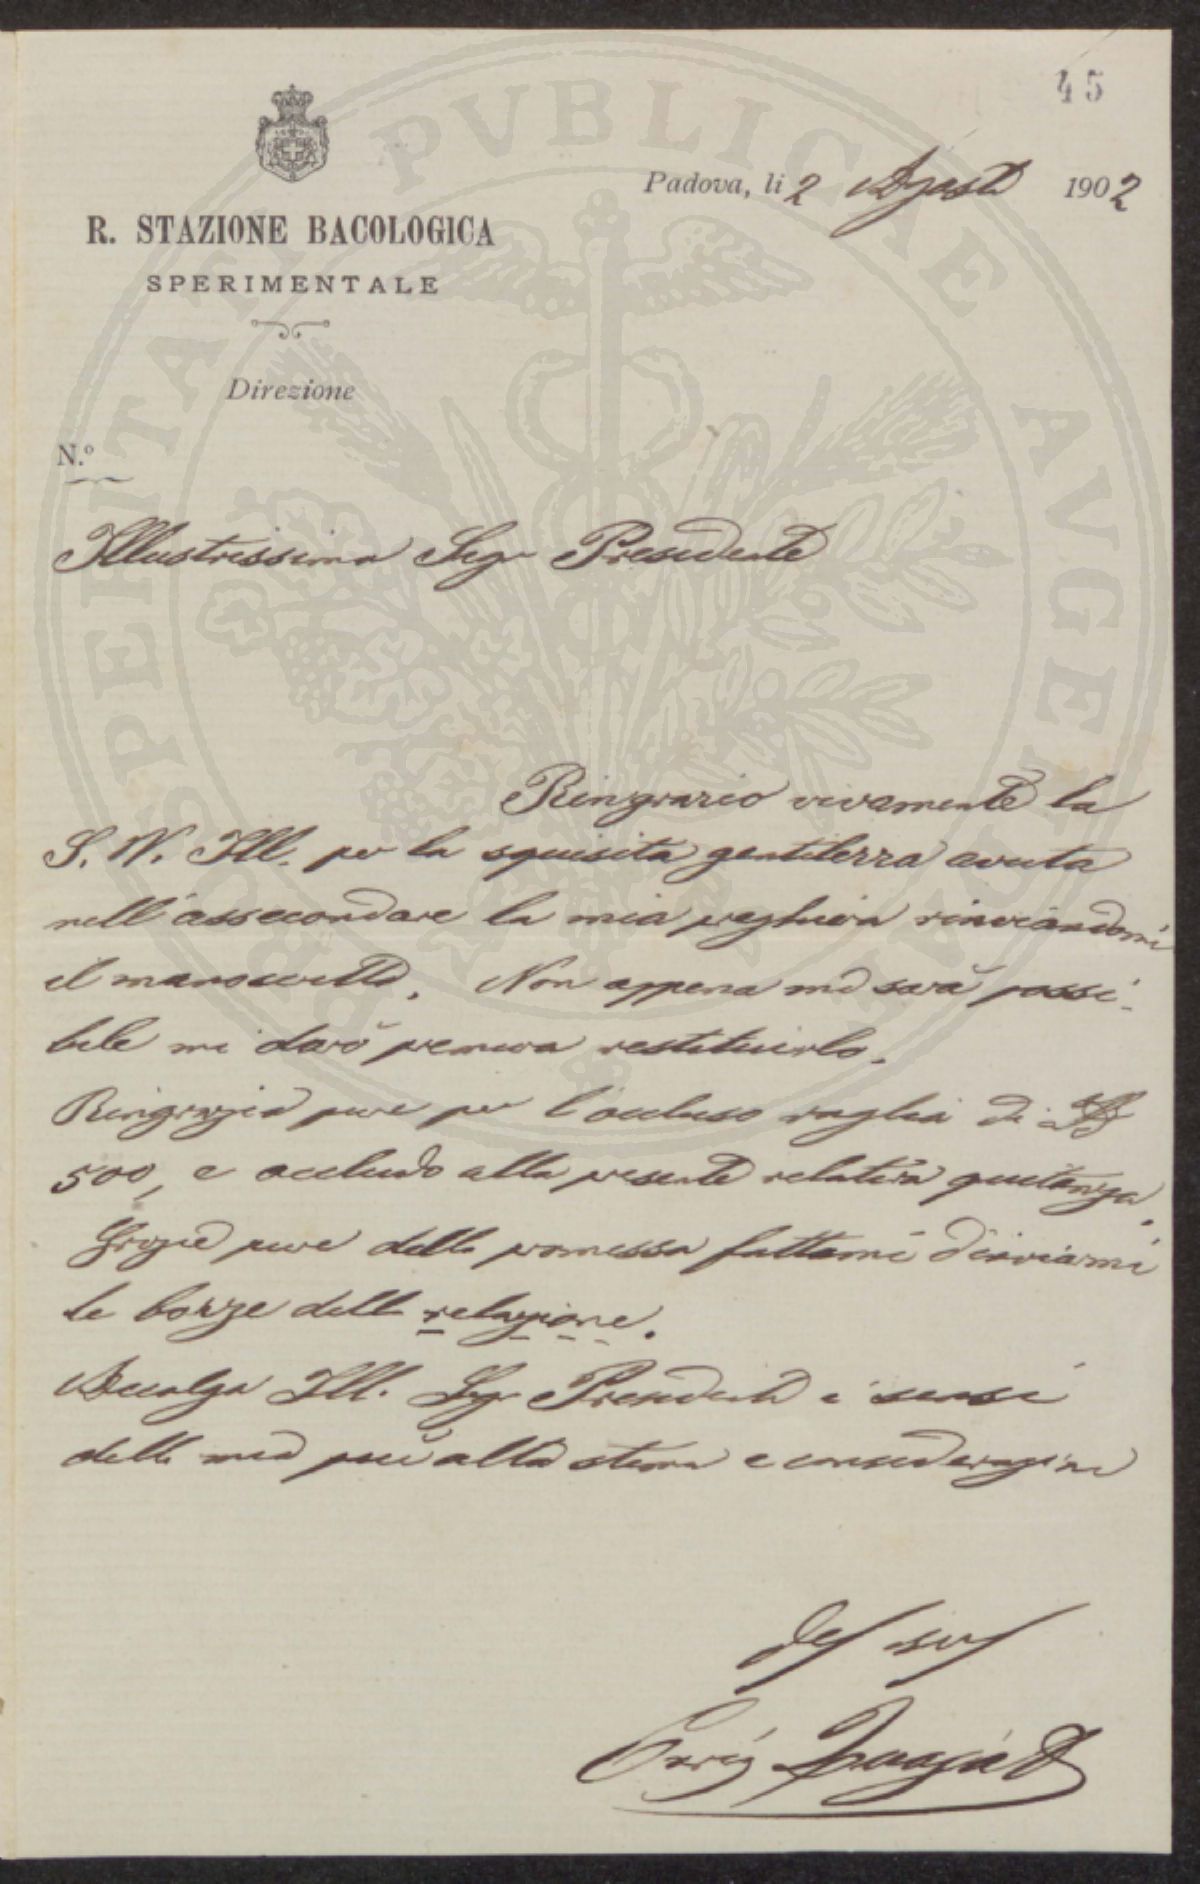 45
Padova, li 2 Agosto 1902
R. STAZIONE BACOLOGICA
SPERIMENTALE
Direzione
N.º
Illustrissimo Sigr Presidente
Ringrazio vivamente la
S. V. Ill. per la squisita gentilezza avuta
nell'assecondare la mia preghiera rinviandomi
il manoscritto. Non appena mi sarà possi-
bile mi darò premura restituirlo.
Ringrazio pure per l'accluso vaglia di
500, e accludo alla presente relativa quitanza.
Grazie pure della promessa fattami d'inviarmi
le bozze della relazione.
Accolga Ill. Sigr Presidente i sensi
della mia più alta stima e considerazione
PROSPERITATI PVBLICAE AVGENDAE